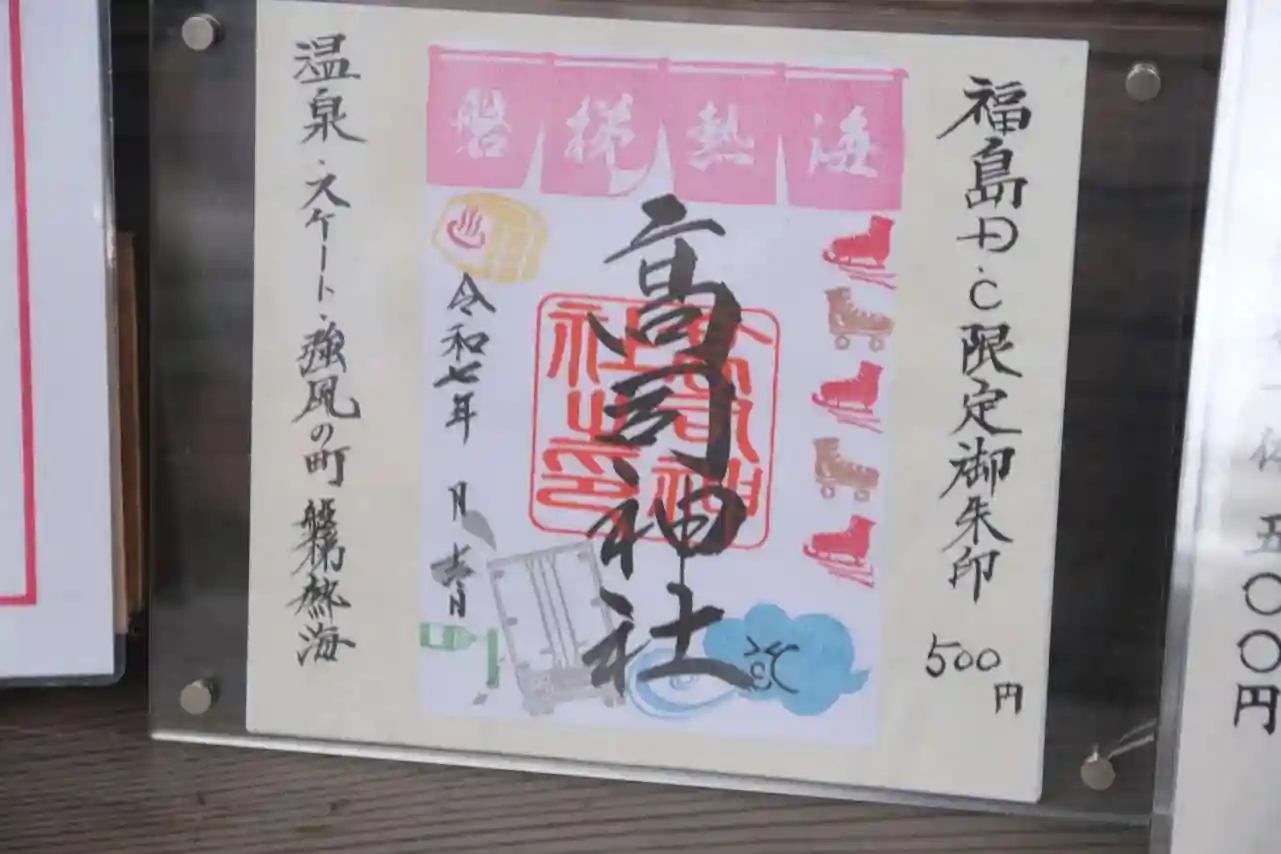 福島D.C限定御朱印
500円
磐梯熱海
高司神社
令和七年 月 吉日
温泉・スケート・強風の町 磐梯熱海
五〇〇円